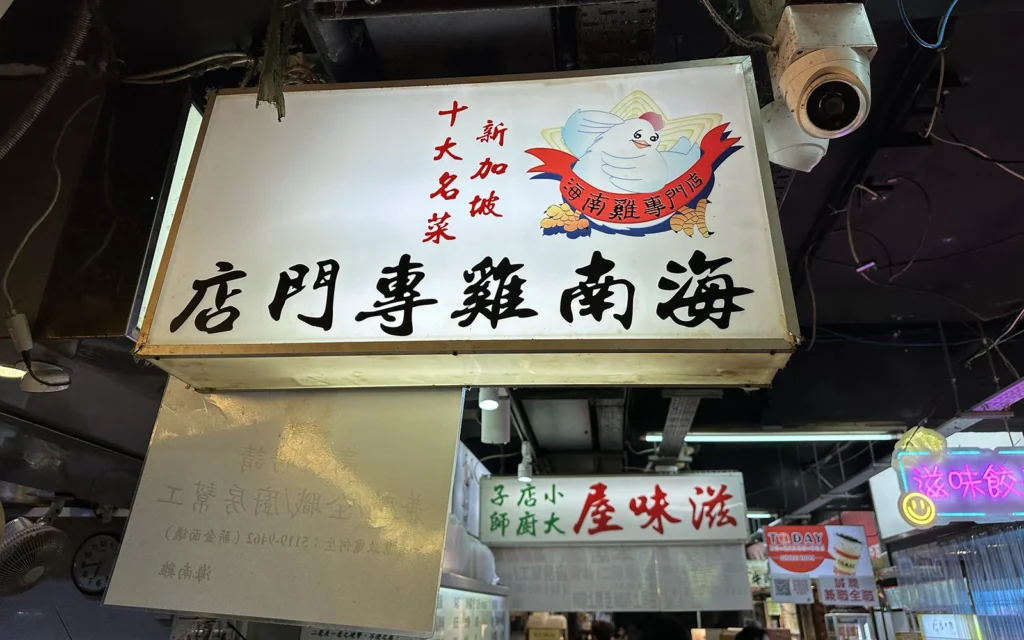 新加坡
十大名菜
海南雞專門店
海南雞專門店
全職/廚房幫工
5119-9462 (薪金面議)
海南雞
滋味屋
小店
大廚
子師
滋味餃
TODAY
誠聘
兼職全職